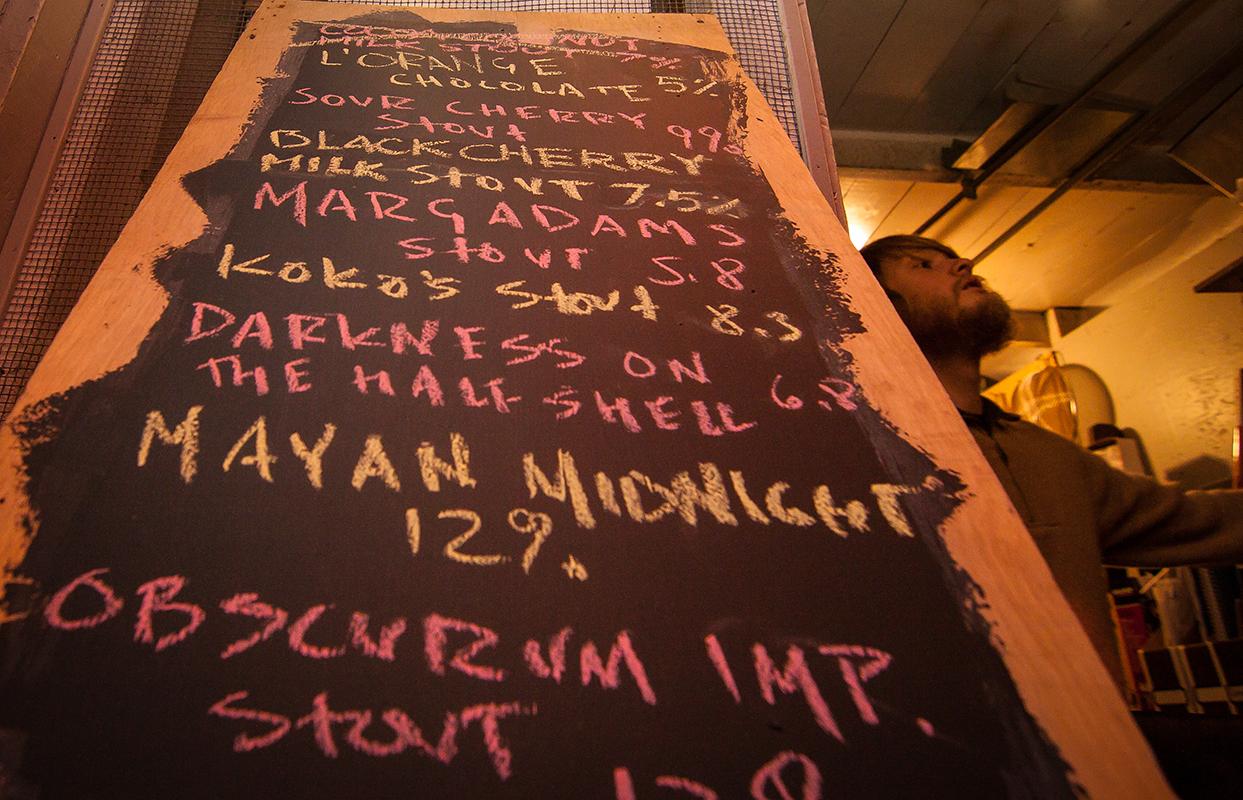 MILK STOUT 7%
L'ORANGE
CHOCOLATE 5%
SOUR CHERRY
STOUT 99s
BLACKCHERRY
MILK STOUT 7.5%
MARGADAMS
STOUT 5.8
KOKO'S STOUT 8.3
DARKNESS ON
THE HALF SHELL 6.8
MAYAN MIDNIGHT
12%
OBSCURUM IMP.
STOUT